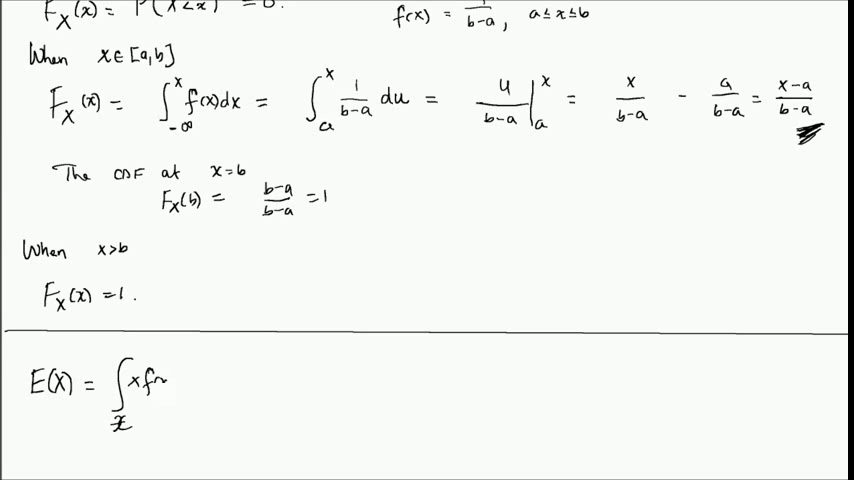 F_X(x) = P(X<x) = 0. f(x) = 1/(b-a), a≤x≤b
When x∈[a,b]
F_X(x) = ∫_{-∞}^{x} f(x)dx = ∫_{a}^{x} 1/(b-a) du = u/(b-a) |_{a}^{x} = x/(b-a) - a/(b-a) = (x-a)/(b-a)
The CDF at x=b
F_X(b) = (b-a)/(b-a) = 1
When x>b
F_X(x) = 1.
E(X) = ∫_x x f